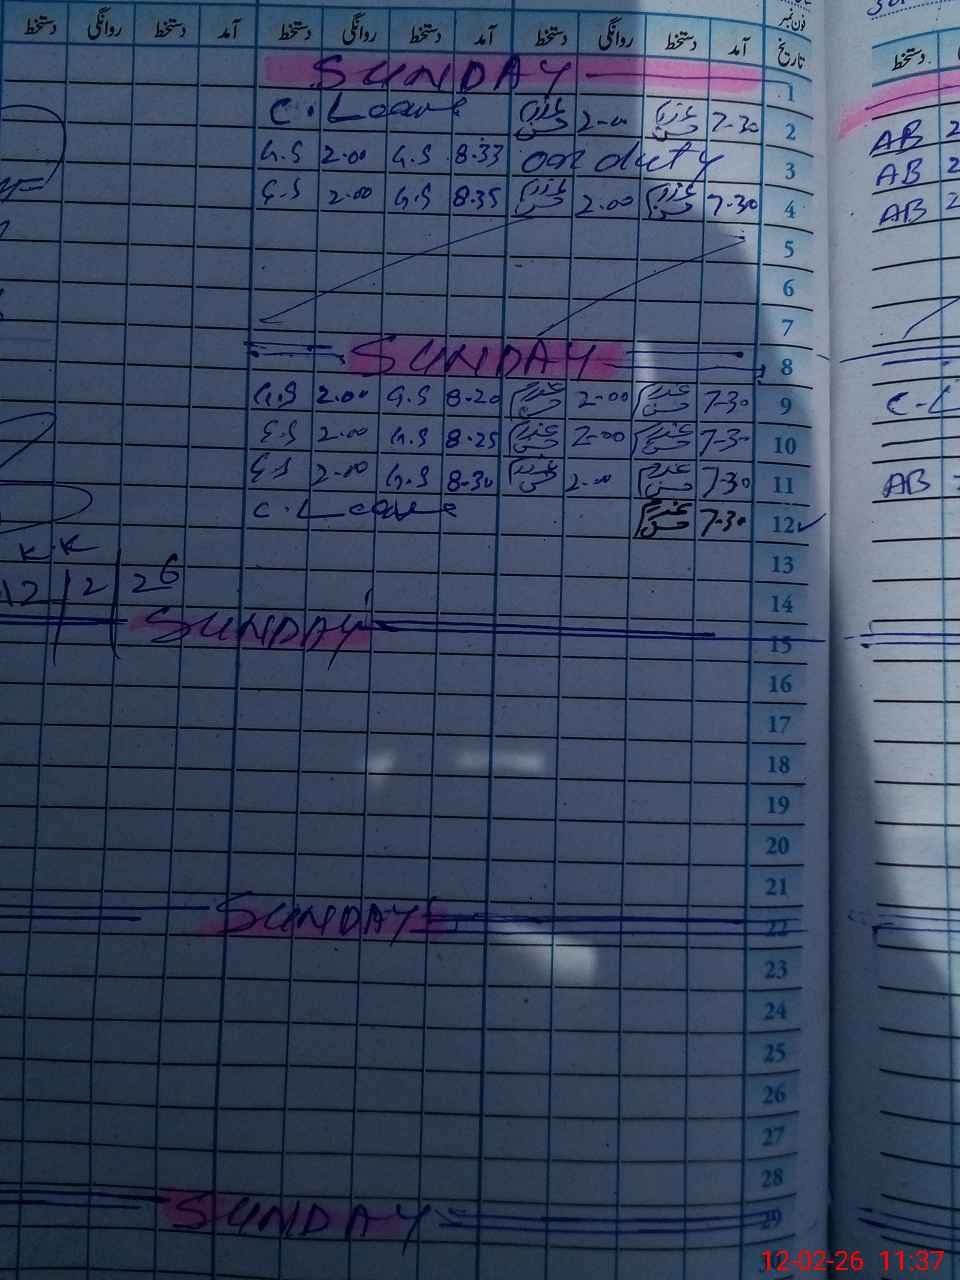 فون نمبر
تاریخ آمد دستخط روانگی دستخط آمد دستخط روانگی دستخط آمد دستخط روانگی دستخط
دستخط
1 SUNDAY
2 7-30 2-00 C. Leave
AB 2
3 on duty 8.33 G.S 2.00 G.S
AB 2
4 7-30 2.00 8.35 G.S 2.00 G.S
AB 2
5
6
7
8 SUNDAY
9 7-30 2-00 8-20 G.S 2.00 G.S
C-L
10 7-30 2-00 8.25 G.S 2-00 G.S
11 7-30 2-00 8-30 G.S 2-00 G.S
AB
12 7-30 C. Leave
13
K.K
14
12/2/26
15 SUNDAY
16
17
18
19
20
21
22 SUNDAY
23
24
25
26
27
28
29 SUNDAY
12-02-26 11:37